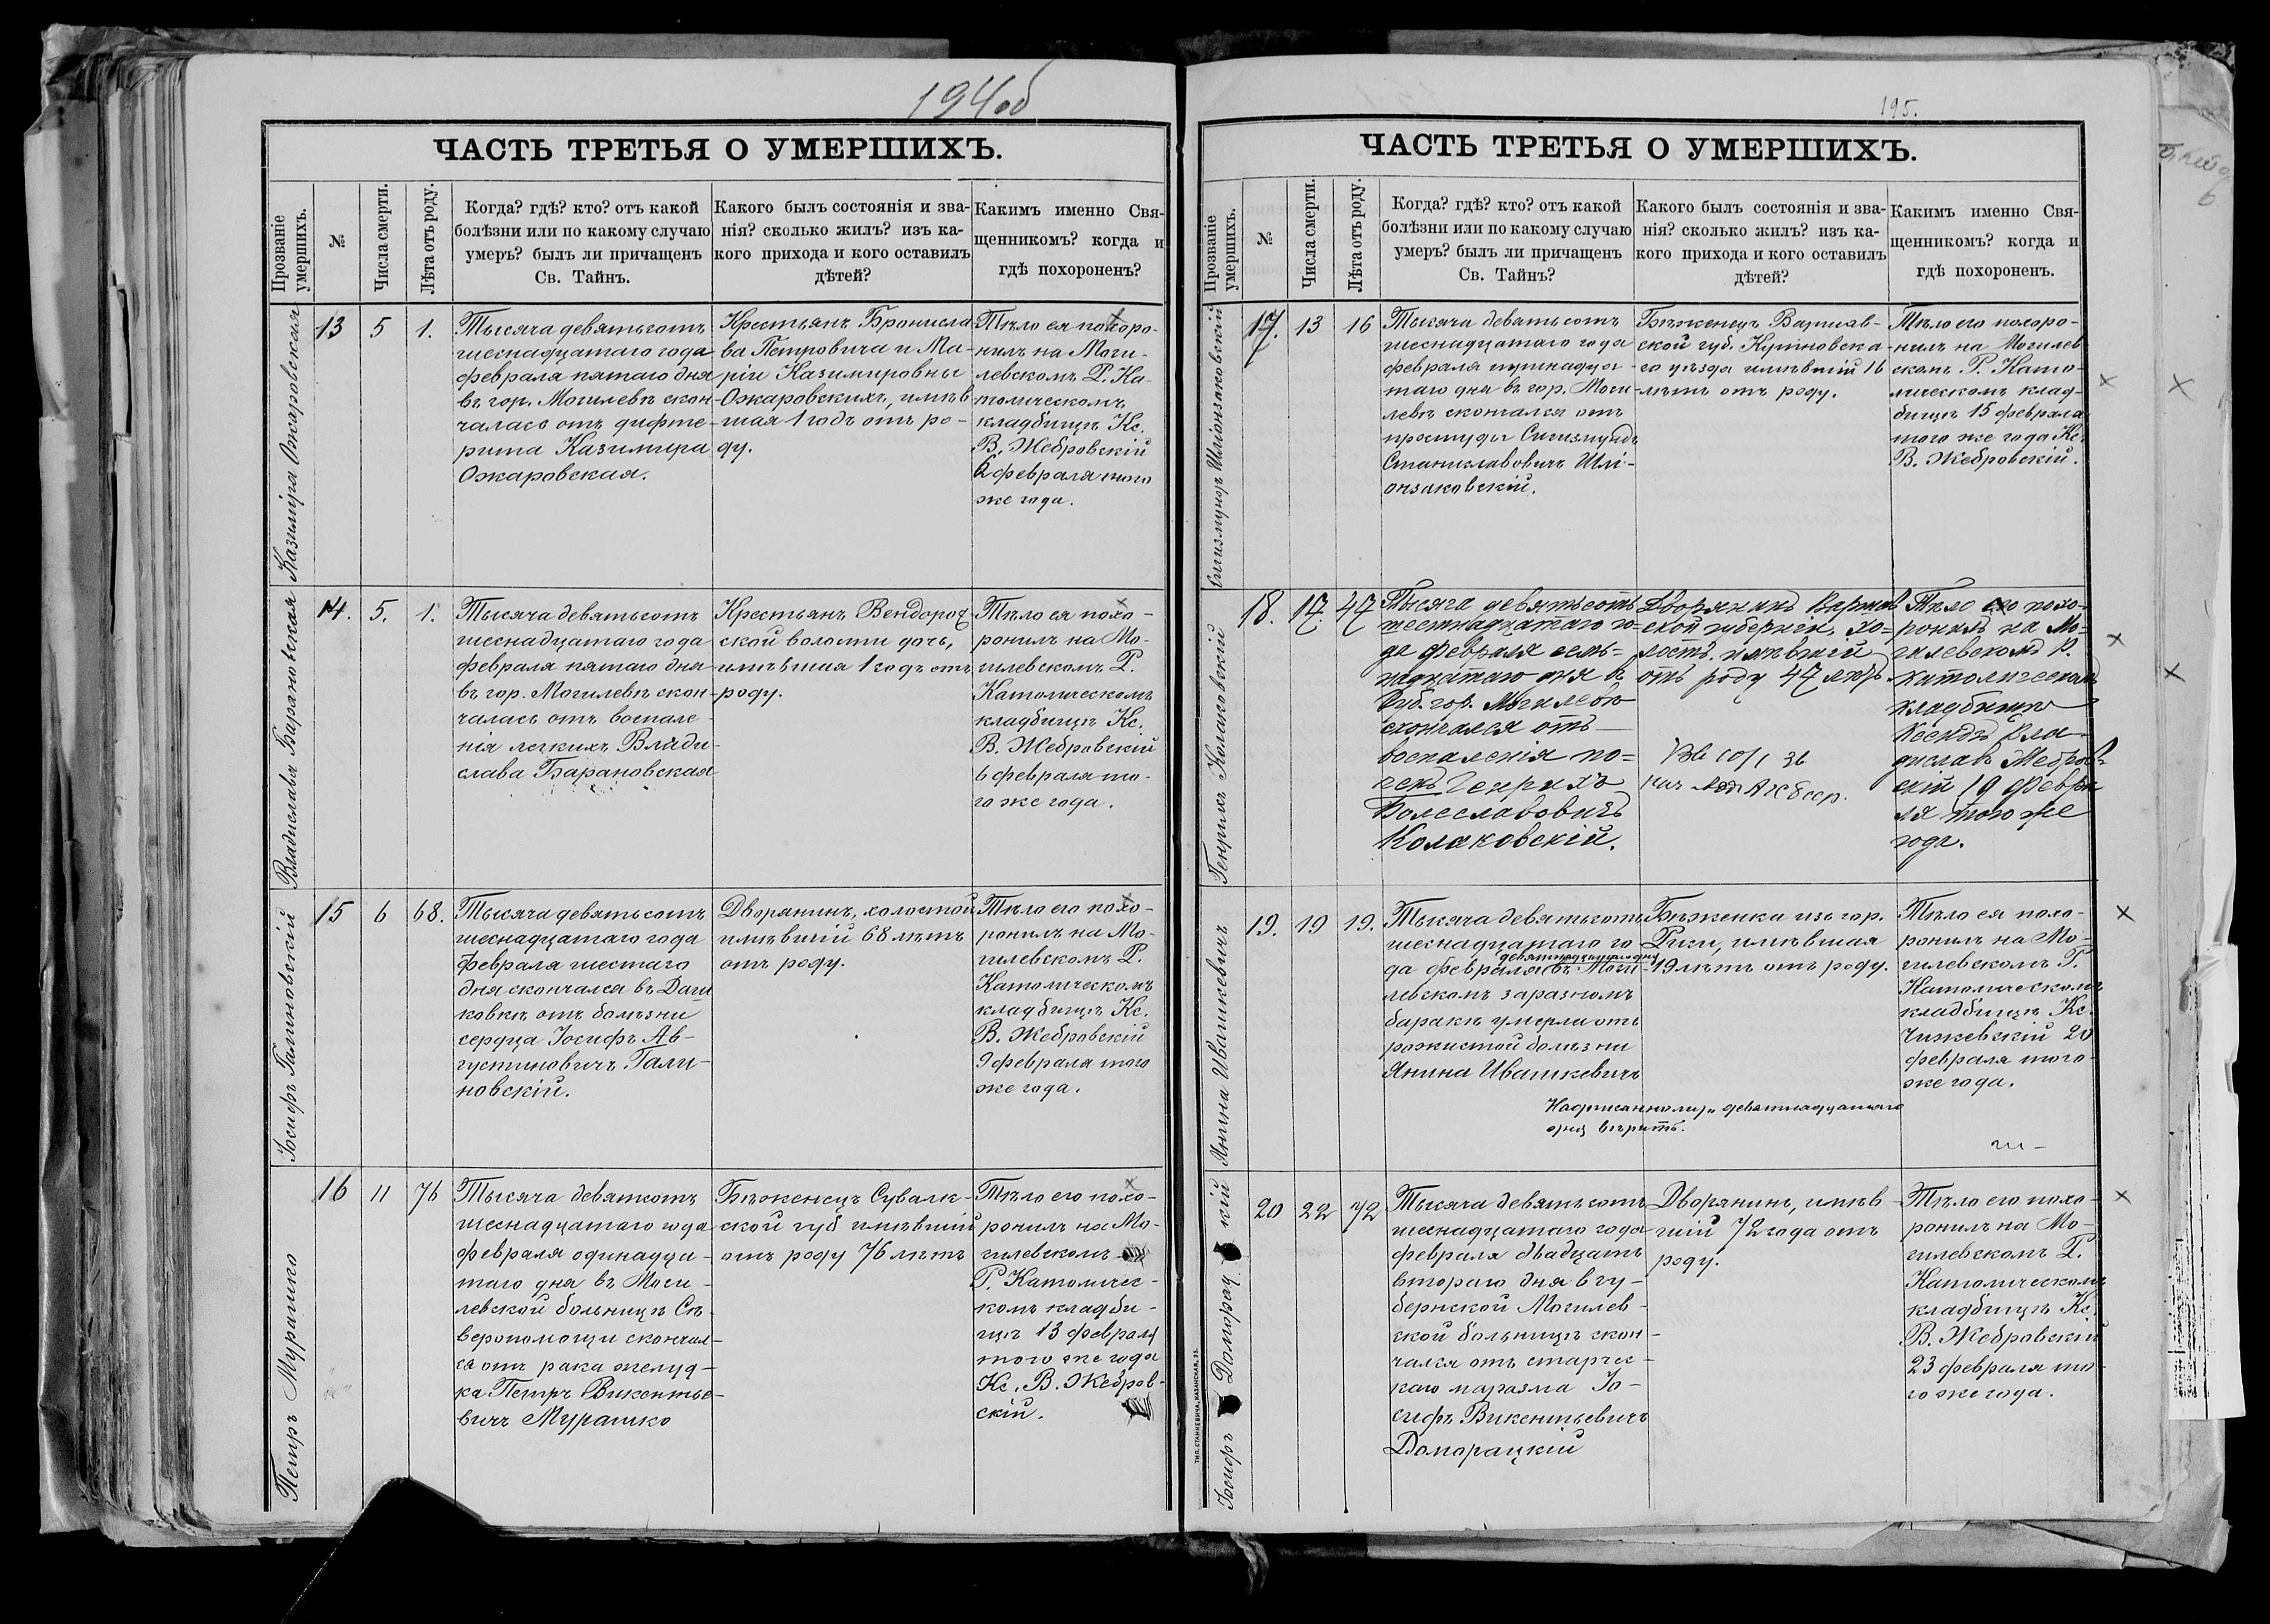 194об
ЧАСТЬ ТРЕТЬЯ О УМЕРШИХЪ.
Прозваніе умершихъ.
№
Числа смерти.
Лѣта отъ роду.
Когда? гдѣ? кто? отъ какой
болѣзни или по какому случаю
умеръ? былъ ли причащенъ
Св. Тайнъ.
Какого былъ состоянія и зва-
нія? сколько жилъ? изъ ка-
кого прихода и кого оставилъ
дѣтей?
Какимъ именно Свя-
щенникомъ? когда и
гдѣ похороненъ?
Казиміра Ожаровская
13
5
1.
Тысяча девятьсотъ
шеснадцатаго года
февраля пятаго дня
въ гор. Могилевѣ скон-
чалась отъ дифте-
рита Казимира
Ожаровская.
Крестьянъ Бронисла
ва Петровича и Ма-
ріи Казимировны
Ожаровскихъ, имѣв
шая 1 годъ отъ ро-
ду.
Тѣло ея похоро-
нилъ на Моги-
левскомъ Р. Ка-
толическомъ
кладбищѣ Кс.
В. Жебровскій
6 февраля того
же года.
Владислава Барановская
14.
5.
1.
Тысяча девятьсотъ
шеснадцатаго года
февраля пятаго дня
въ гор. Могилевѣ скон-
чалась отъ воспале-
нія легкихъ Влади-
слава Барановская
Крестьянъ Вендорож
ской волости дочь,
имѣвшая 1 годъ отъ
роду.
Тѣло ея похо-
ронилъ на Мо-
гилевскомъ Р.
Католическомъ
кладбищѣ Кс.
В. Жебровскій
6 февраля то-
го же года.
Іосифъ Галиновскій
15
6
68.
Тысяча девятьсотъ
шеснадцатаго года
февраля шестаго
дня скончался въ Даш
ковкѣ отъ болѣзни
сердца Іосифъ Ав-
густиновичъ Гали-
новскій.
Дворянинъ, холостой
имѣвшій 68 лѣтъ
отъ роду.
Тѣло его похо-
ронилъ на Мо-
гилевскомъ Р.
Католическомъ
кладбищѣ Кс.
В. Жебровскій
9 февраля того
же года.
Петръ Мурашко
16
11
76
Тысяча девятсотъ
шеснадцатаго года
февраля одинадца-
таго дня въ Моги-
левской больницѣ Сѣ-
веропомощи скончал-
ся отъ рака желуд-
ка Петръ Викентье-
вичъ Мурашко
Бѣженецъ Сувалк-
ской губ имѣвшій
отъ роду 76 лѣтъ
Тѣло его похо-
ронилъ на Мо-
гилевскомъ
Р. Католичес-
комъ кладби-
щѣ 13 февраля
того же года
Кс. В. Жебров-
скій.
195.
ЧАСТЬ ТРЕТЬЯ О УМЕРШИХЪ.
Прозваніе умершихъ.
№
Числа смерти.
Лѣта отъ роду.
Когда? гдѣ? кто? отъ какой
болѣзни или по какому случаю
умеръ? былъ ли причащенъ
Св. Тайнъ?
Какого былъ состоянія и зва-
нія? сколько жилъ? изъ ка-
кого прихода и кого оставилъ
дѣтей?
Какимъ именно Свя-
щенникомъ? когда и
гдѣ похороненъ.
Сигизмундъ Шліонзаковскій
17.
13
16
Тысяча девятьсотъ
шеснадцатаго года
февраля тринадца-
таго дня въ гор. Моги
левѣ скончался отъ
простуды Сигизмундъ
Станиславовичъ Шлі-
онзаковскій.
Бѣженецъ Варшав-
ской губ. Кутновска-
го уѣзда имѣвшій 16
лѣтъ отъ роду.
Тѣло его похоро-
нилъ на Могилев
скомъ Р. Като-
лическомъ клад-
бищѣ 15 февраля
того же года Кс.
В. Жебровскій.
Генрихъ Колаковскій
18.
17.
47
Тысяча девятьсотъ
шестнадцатаго го-
да февраля семь-
надцатаго дня въ
Губ. гор. Могилевѣ
скончался отъ
воспаленія по-
чекъ Генрихъ
Болеславовичъ
Колаковскій.
Дворянинъ Варшав
ской губерніи, хо-
лостъ. имѣвшій
отъ роду 47 лѣтъ.
10/I 36
Тѣло его похо-
ронилъ на Мо-
гилевскомъ Р.
Католическомъ
кладбищѣ
Ксендзъ Вла-
диславъ Жебров-
скій 19 Февра
ля того же
года.
Янина Ивашкевичъ
19.
19
19.
Тысяча девятьсотъ
шеснадцатаго го
девятнадцатаго дня
да февраля въ Моги-
левскомъ заразномъ
баракѣ умерла отъ
рожистой болѣзни
Янина Ивашкевичъ
Бѣженка изъ гор.
Риги, имѣвшая
19 лѣтъ отъ роду.
Надписанному: девятнадцатаго
дня вѣрить.
Тѣло ея похо-
ронилъ на Мо-
гилевскомъ Р.
Католическомъ
кладбищѣ Кс.
Чижевскій 20
февраля того
же года.
Іосифъ Доморацкій
20
22
72
Тысяча девятьсотъ
шеснадцатаго года
февраля двадцать
втораго дня в гу-
бернской Могилев-
ской больницѣ скон-
чался отъ старчес-
каго маразма Іо-
сифъ Викентьевичъ
Доморацкій
Дворянинъ, имѣв
шій 72 года отъ
роду.
Тѣло его похо-
ронилъ на Мо-
гилевскомъ Р.
Католическомъ
кладбищѣ Кс.
В. Жебровскій
23 февраля то-
го же года.
ТИП. СТАНКЕВИЧА, КАЗАНСКАЯ, 33.